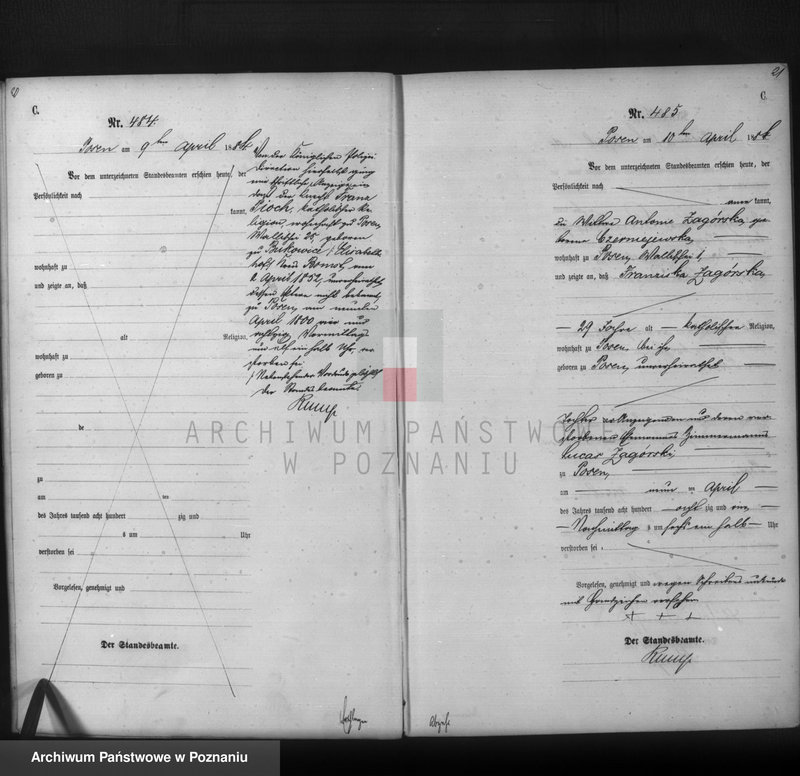 20
C.
Nr. 484.
Posen am 9ten April 1884
Vor dem unterzeichneten Standesbeamten erschien heute, der
Persönlichkeit nach
kannt,
wohnhaft zu
und zeigte an, daß
alt Religion,
wohnhaft zu
geboren zu
de
zu
am ten
des Jahres tausend acht hundert zig und
s um Uhr
verstorben sei
Vorgelesen, genehmigt und
Der Standesbeamte.
Von der Königlichen Polizei
Direction hierselbst ging
die schriftliche Anzeige ein
daß der Knecht Franz
Pioch, katholischer Re-
ligion, wohnhaft zu Posen
Wallischei geboren
zu Bukowiec
Kreis Bomst, am
2 April 1852, unverheirathet
dessen Eltern nicht bekannt,
zu Posen, am neunten
April 1800 vier und
achtzig, Vormittags
um elf ein halb Uhr, ver-
storben sei.
Der Standesbeamte
21
C.
Nr. 485
Posen am 10ten April 1884
Vor dem unterzeichneten Standesbeamten erschien heute, der
Persönlichkeit nach
kannt,
die Wittwe Antonie Zagórska ge-
borene Czermejewska,
wohnhaft zu Posen, Wallischei
und zeigte an, daß Franziska Zagórska,
29 Jahre alt katholischer Religion,
wohnhaft zu Posen, bei ihr
geboren zu Posen, unverheirathet
Tochter der Anzeigenden und deren ver-
storbenen Ehemannes Zimmermanns
Lucas Zagórski
zu Posen,
am neun ten April
des Jahres tausend acht hundert acht zig und vier
Nachmittag s um sechs ein halb Uhr
verstorben sei
Vorgelesen, genehmigt und wegen Schreibens unkunde
mit Handzeichen versehen
+ + +
Der Standesbeamte.
ARCHIWUM PAŃSTWOWE
W POZNANIU
Archiwum Państwowe w Poznaniu